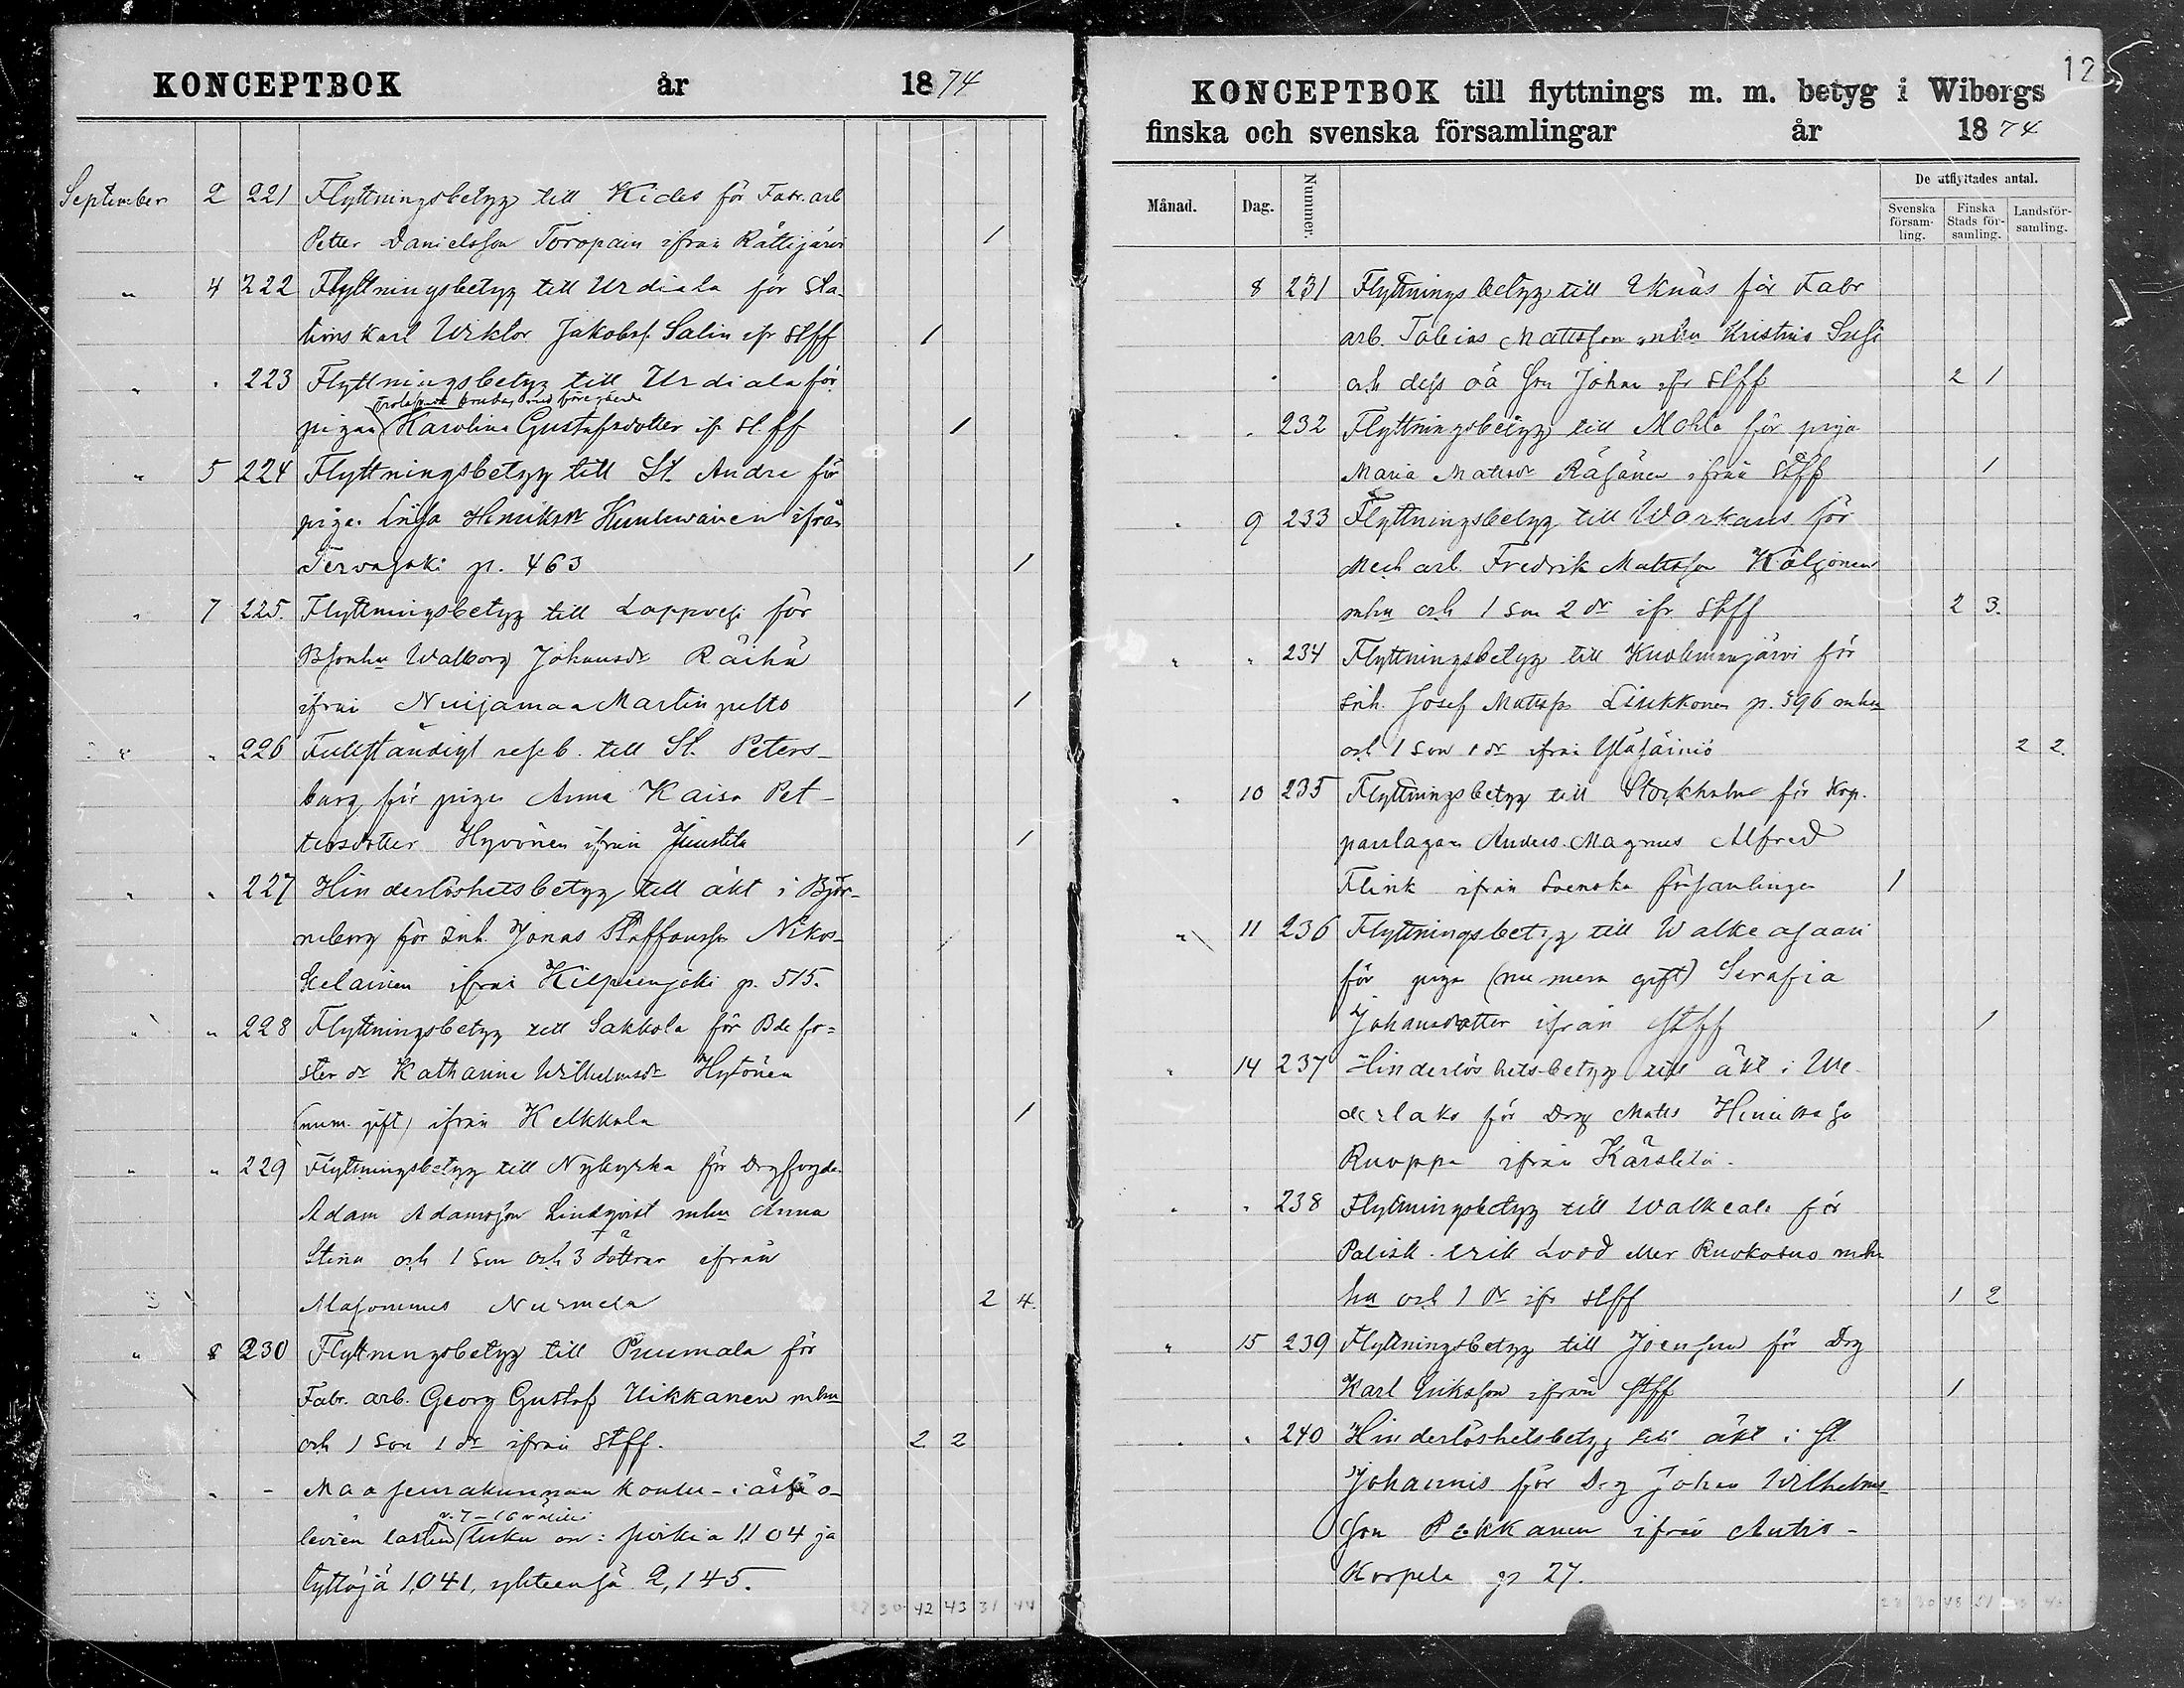 KONCEPTBOK år 1874
September 2 221 Flyttningsbetyg till Kides för Fabr. arb
Petter Danielsson Toropain ifrån Rättijärvi 1
" 4 222 Flyttningsbetyg till Urdiala för Sta-
Karl Wiktor Jakobss. Salin ifr Stff 1
" " 223 Flyttningsbetyg till Urdiala för
med föregående
pigan Karolina Gustafsdotter ifr St.ff 1
" 5 224 Flyttningsbetyg till St. Andre för
piga Henriksdr ifrån
Tervajoki p. 463 1
" 7 225. Flyttningsbetyg till Lappvesi för
Walborg Johansdr Räihä
ifrån Nuijamaa Martinpelto 1
" " 226 Fullständigt reseb. till St. Peters-
burg för pigan Anna Kaisa Pet-
tersdotter Hyvönen ifrån Juustila 1
" " 227 Hinderlöshetsbetyg till äkt i Björ-
neborg för Inh. Jonas Staffansson Nikos-
kelainen ifrån Kilpeenjoki p. 515.
" " 228 Flyttningsbetyg till Sakkola för Bde fo-
ster dr Katharina Wilhelmsdr Hytönen
(num. gift) ifrån Kelkkala 1
" " 229 Flyttningsbetyg till Nykyrka för
Adam Adamsson Lindqvist mhu Anna
Stina och 1 son och 3 döttrar ifrån
Alasommes Nurmela 2 4.
" 8 230 Flyttningsbetyg till Puumala för
Fabr. arb. Georg Gustaf Ukkanen mhu
och 1 son 1 dr ifrån Stff. 2 2
" - Maaseurakunnan koulu-iässä o-
v. 7-16 välillä
levien lasten luku on: poikia 1104 ja
tyttöjä 1,041, yhteensä 2,145.
30 42 43 31 44
125
KONCEPTBOK till flyttnings m. m. betyg i Wiborgs
finska och svenska församlingar år 1874
Månad. Dag. Nummer. De utflyttades antal.
Svenska församling. Finska Stads församling. Landsförsamling.
8 231 Flyttningsbetyg till Eknäs för Fabr
arb. Tobias Mattsson mhu Kristina Susi
och dess oä son Johan ifr Stff 2 1
" " 232 Flyttningsbetyg till Mohla för piga
Maria Mattsdr Räsänen ifrån Stff 1
" 9 233 Flyttningsbetyg till Warkaus för
Mech arb. Fredrik Mattsson Käljönen
mhu och 1 son 2 dr ifr. Stff 2 3.
" " 234 Flyttningsbetyg till Kuolemajärvi för
Inh. Josef Mattss Liukkonen p. 396 mhu
och 1 son 1 dr ifrån Yläsäiniö 2 2.
" 10 235 Flyttningsbetyg till Stockholm för Kop-
parslagaren Anders Magnus Alfred
Flink ifrån Svenska församlingen 1
" 11 236 Flyttningsbetyg till Walkeasaari
för piga (nu mera gift) Serafia
Johansdotter ifrån Stff 1
" 14 237 Hinderlöshetsbetyg till äkt i We-
derlaks för Drg Matts Henriksso
Ruoppa ifrån Kärstilä.
" " 238 Flyttningsbetyg till Walkeala för
Polisk. Erik Lood eller Ruokosuo m
hu och 1 dr ifr Stff 1 2
" 15 239 Flyttningsbetyg till Joensuu för Drg
Karl Eriksson ifrån Stff 1
" " 240 Hinderlöshetsbetyg till äkt i St
Johannis för Drg Johan Wilhelms-
son Pekkanen ifrån Autio-
Korpela p 27.
30 48 51